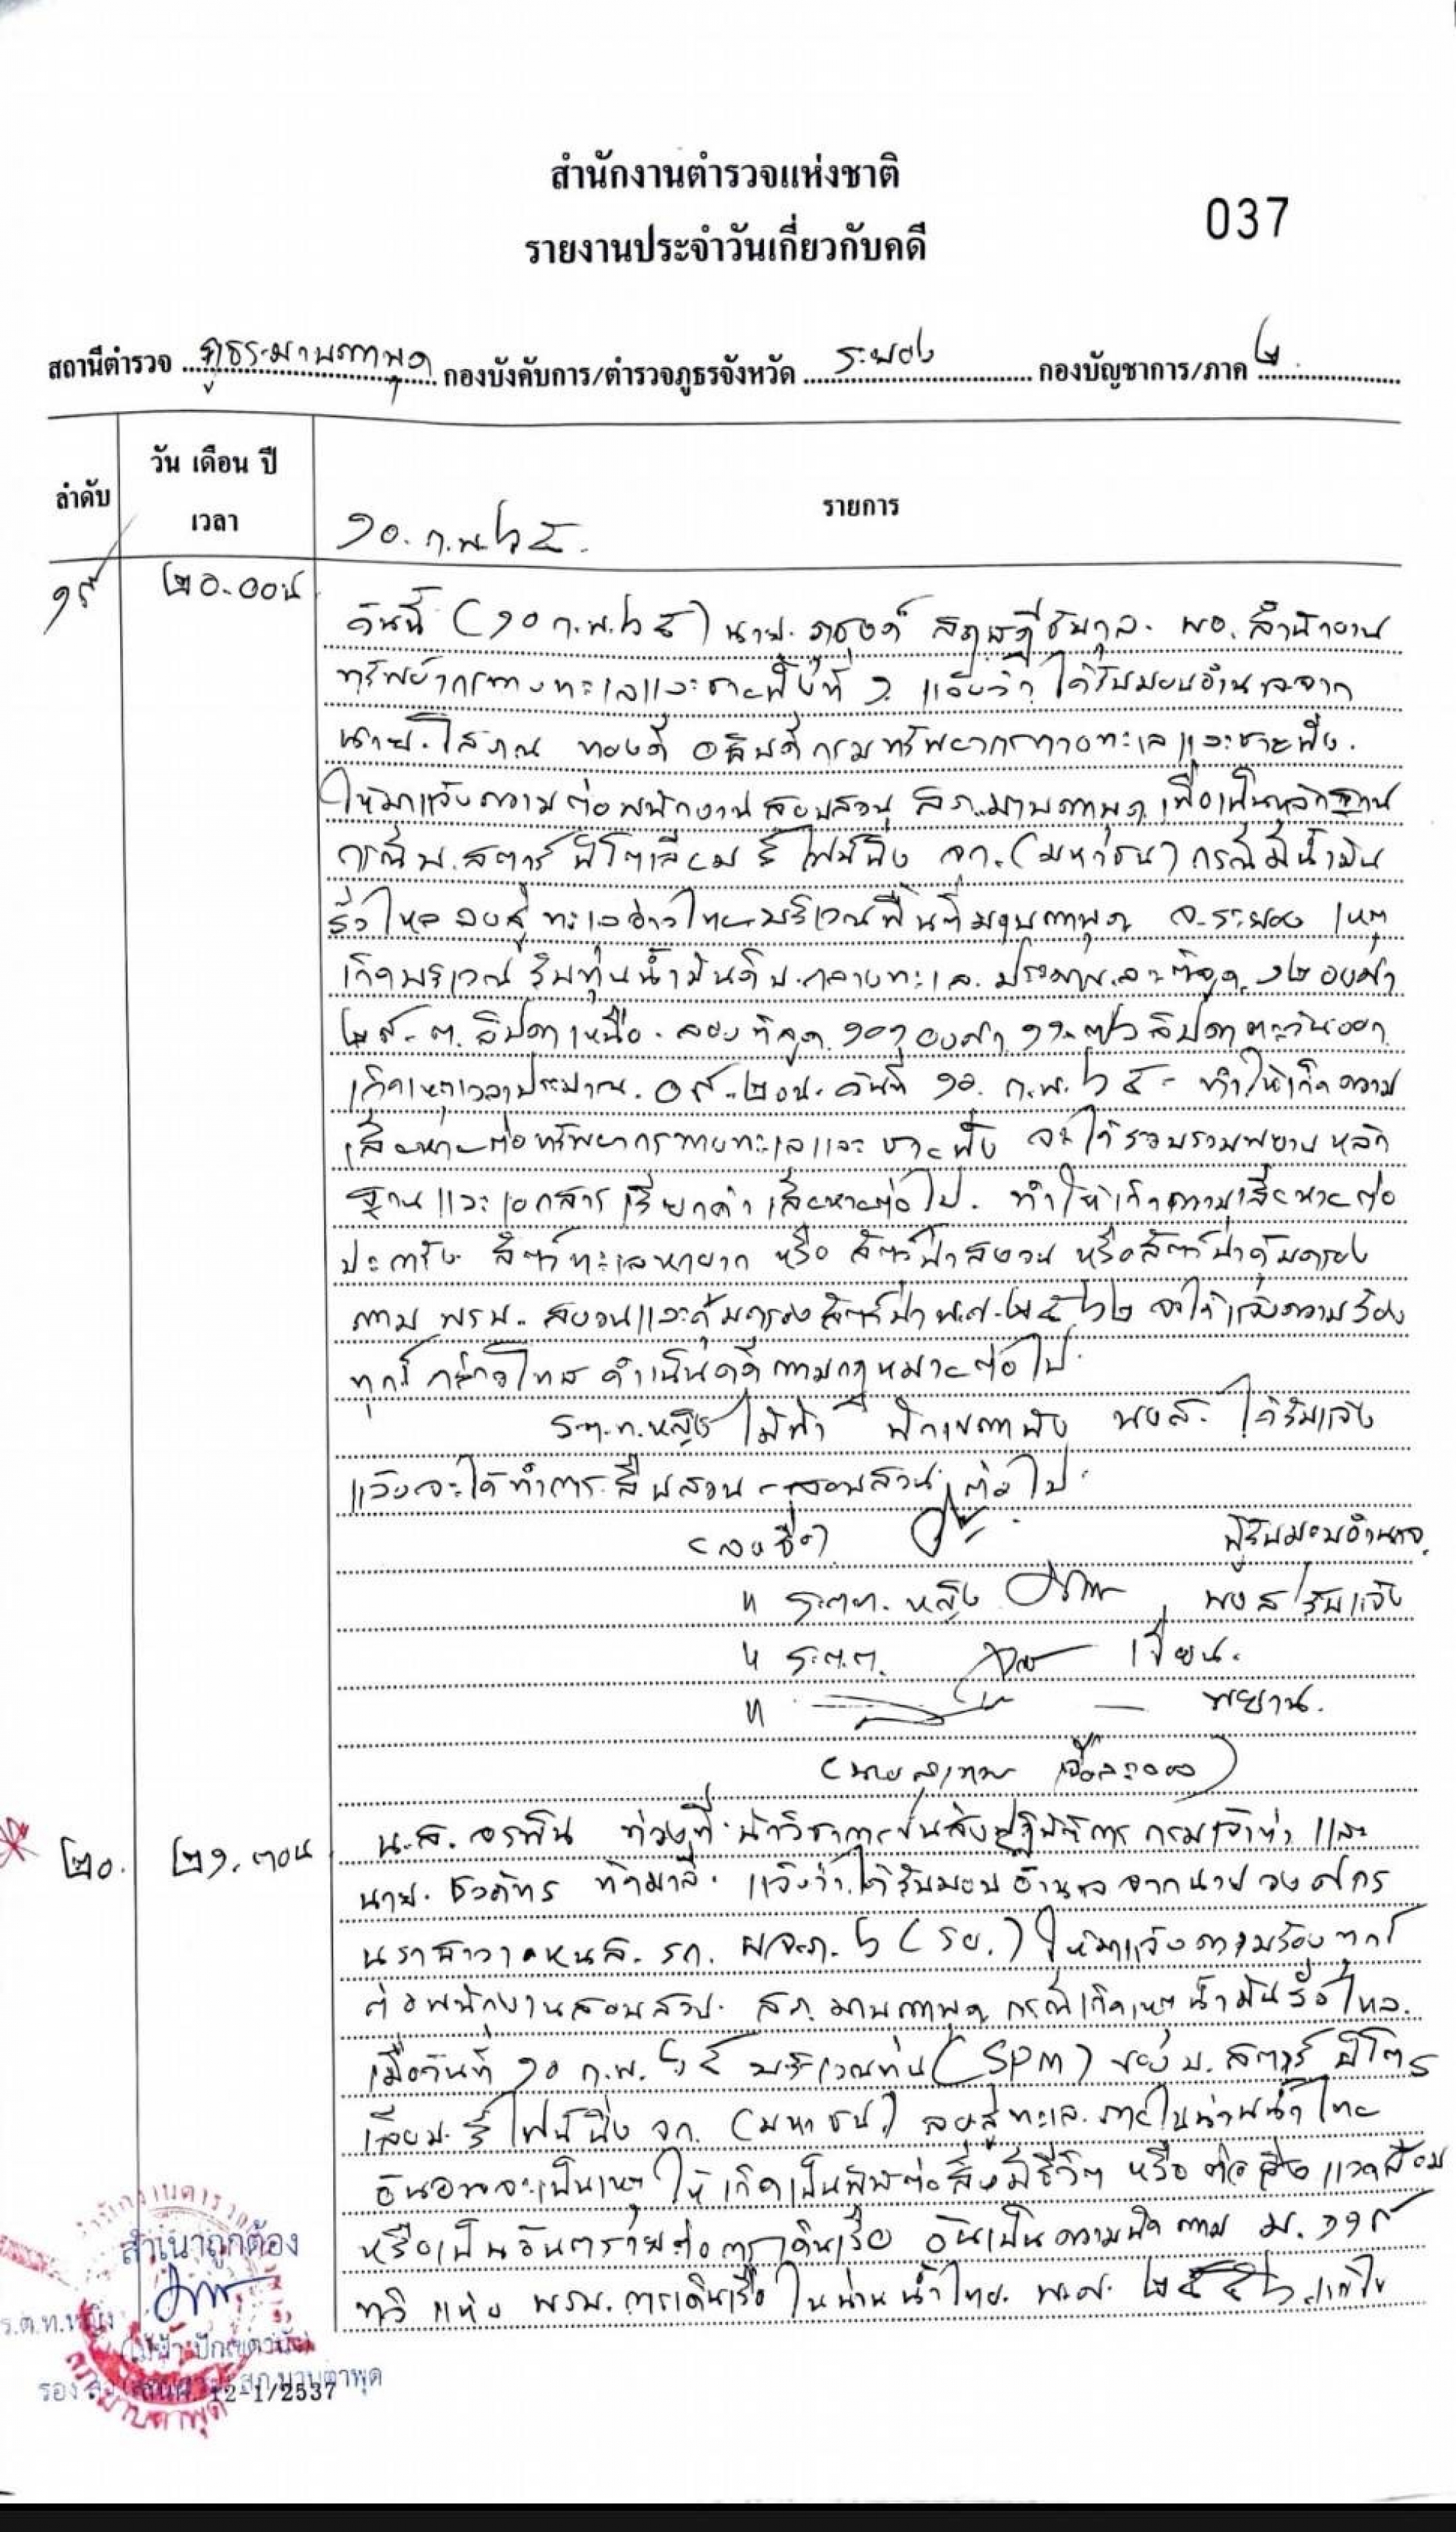 สำนักงานตำรวจแห่งชาติ
รายงานประจำวันเกี่ยวกับคดี
037
สถานีตำรวจ ภูธรมาบตาพุด กองบังคับการ/ตำรวจภูธรจังหวัด ระยอง กองบัญชาการ/ภาค ๒
ลำดับ
วัน เดือน ปี
เวลา
รายการ
๑๐ ก.พ. ๖๕
๑๙
๒๐.๐๐น
วันนี้ (๑๐ ก.พ. ๖๕) นาย ภุชงค์ สฤษฎีชัยกุล ผอ. สำนักงาน
ทรัพยากรทางทะเลและชายฝั่งที่ ๑ แจ้งว่า ได้รับมอบอำนาจจาก
นาย โสภณ ทองดี อธิบดีกรมทรัพยากรทางทะเลและชายฝั่ง
ให้มาแจ้งความต่อพนักงานสอบสวน สภ.มาบตาพุด เพื่อเป็นหลักฐาน
กรณี บ.สตาร์ ปิโตเลียม รีไฟน์นิ่ง จก. (มหาชน) กรณีมีน้ำมัน
รั่วไหลลงสู่ทะเลอ่าวไทยบริเวณพื้นที่มาบตาพุด จ.ระยอง เหตุ
เกิดบริเวณ ทุ่นน้ำมันดิบ กลางทะเล ประมาณ ละติจูด ๑๒ องศา
ลิปดาเหนือ ลองติจูด ๑๐๑ องศา ลิปดา ตะวันออก
เกิดเหตุเวลาประมาณ วันที่ ๑๐ ก.พ. ๖๕ ทำให้เกิดความ
เสียหายต่อทรัพยากรทางทะเลและชายฝั่ง จะได้รวบรวมพยานหลัก
ฐานและเอกสาร เรียกค่าเสียหายต่อไป ทำให้เกิดความเสียหายต่อ
ปะการัง สัตว์ทะเลหายาก หรือ สัตว์ป่าสงวน หรือสัตว์ป่าคุ้มครอง
ตาม พรบ. สงวนและคุ้มครองสัตว์ป่า พ.ศ. ๒๕๖๒ จะได้แจ้งความร้อง
ทุกข์ กล่าวโทษ ดำเนินคดี ตามกฎหมายต่อไป
ร.ต.ท.หญิง ไม้ฟ้า ปักเขตานัง พงส. ได้รับแจ้ง
แล้วจะได้ทำการสืบสวน - สอบสวน ต่อไป
(ลงชื่อ) ผู้รับมอบอำนาจ
" ร.ต.ท. หญิง พงส/รับแจ้ง
" ร.ต.ต. เขียน
" พยาน
๒๐.
๒๑.๓๐น
น.ส. อรพิน นักวิชาการขนส่งปฏิบัติการ กรมเจ้าท่า และ
นาย แจ้งว่าได้รับมอบอำนาจจากนาย วงศกร
(รย.) ให้มาแจ้งความร้องทุกข์
ต่อพนักงานสอบสวน สภ.มาบตาพุด กรณีเกิดเหตุน้ำมันรั่วไหล
เมื่อวันที่ ๑๐ ก.พ. ๖๕ บริเวณทุ่น (SPM) ของ บ. สตาร์ ปิโตร
เลียม รีไฟน์นิ่ง จก. (มหาชน) ลงสู่ทะเล ภายในน่านน้ำไทย
อันอาจจะเป็นเหตุ ให้เกิดเป็นพิษต่อสิ่งมีชีวิต หรือ ต่อสิ่งแวดล้อม
หรือเป็นอันตรายต่อการเดินเรือ อันเป็นความผิดตาม ม. ๑๑๙
ทวิ แห่ง พรบ. การเดินเรือในน่านน้ำไทย พ.ศ. แก้ไข
สำเนาถูกต้อง
ร.ต.ท.หญิง
รอง สภ.มาบตาพุด
12-1/2537